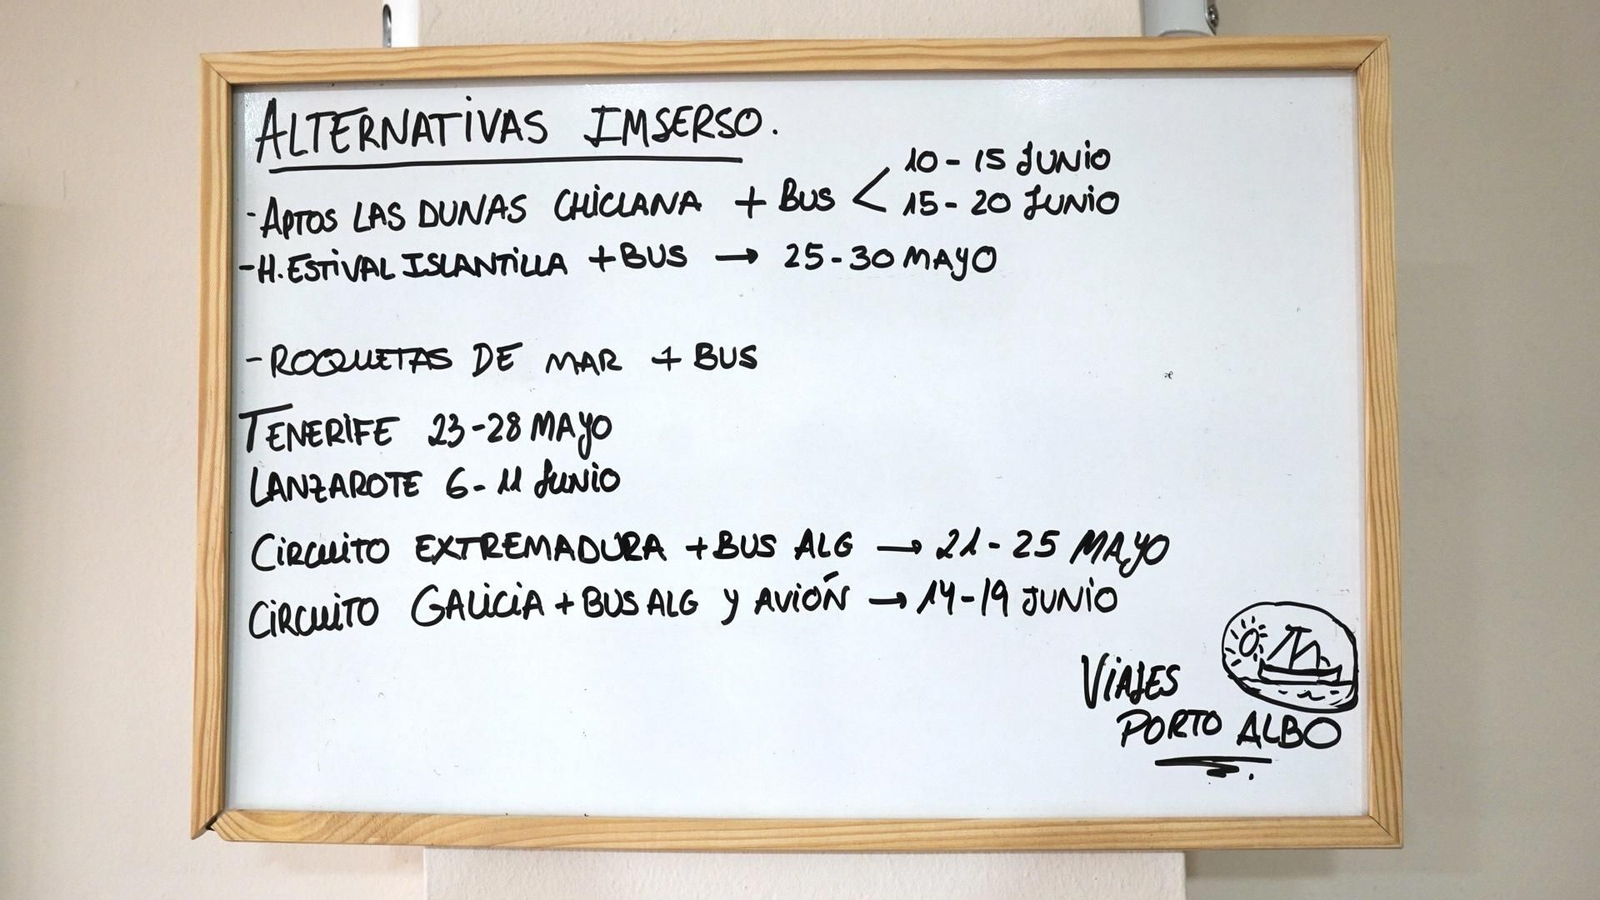 ALTERNATIVAS IMSERSO.
- APTOS LAS DUNAS CHICLANA + BUS < 10 - 15 JUNIO
15 - 20 JUNIO
- H. ESTIVAL ISLANTILLA + BUS → 25 - 30 MAYO
- ROQUETAS DE MAR + BUS
TENERIFE 23 - 28 MAYO
LANZAROTE 6 - 11 JUNIO
CIRCUITO EXTREMADURA + BUS ALG → 21 - 25 MAYO
CIRCUITO GALICIA + BUS ALG Y AVIÓN → 14 - 19 JUNIO
VIAJES
PORTO ALBO